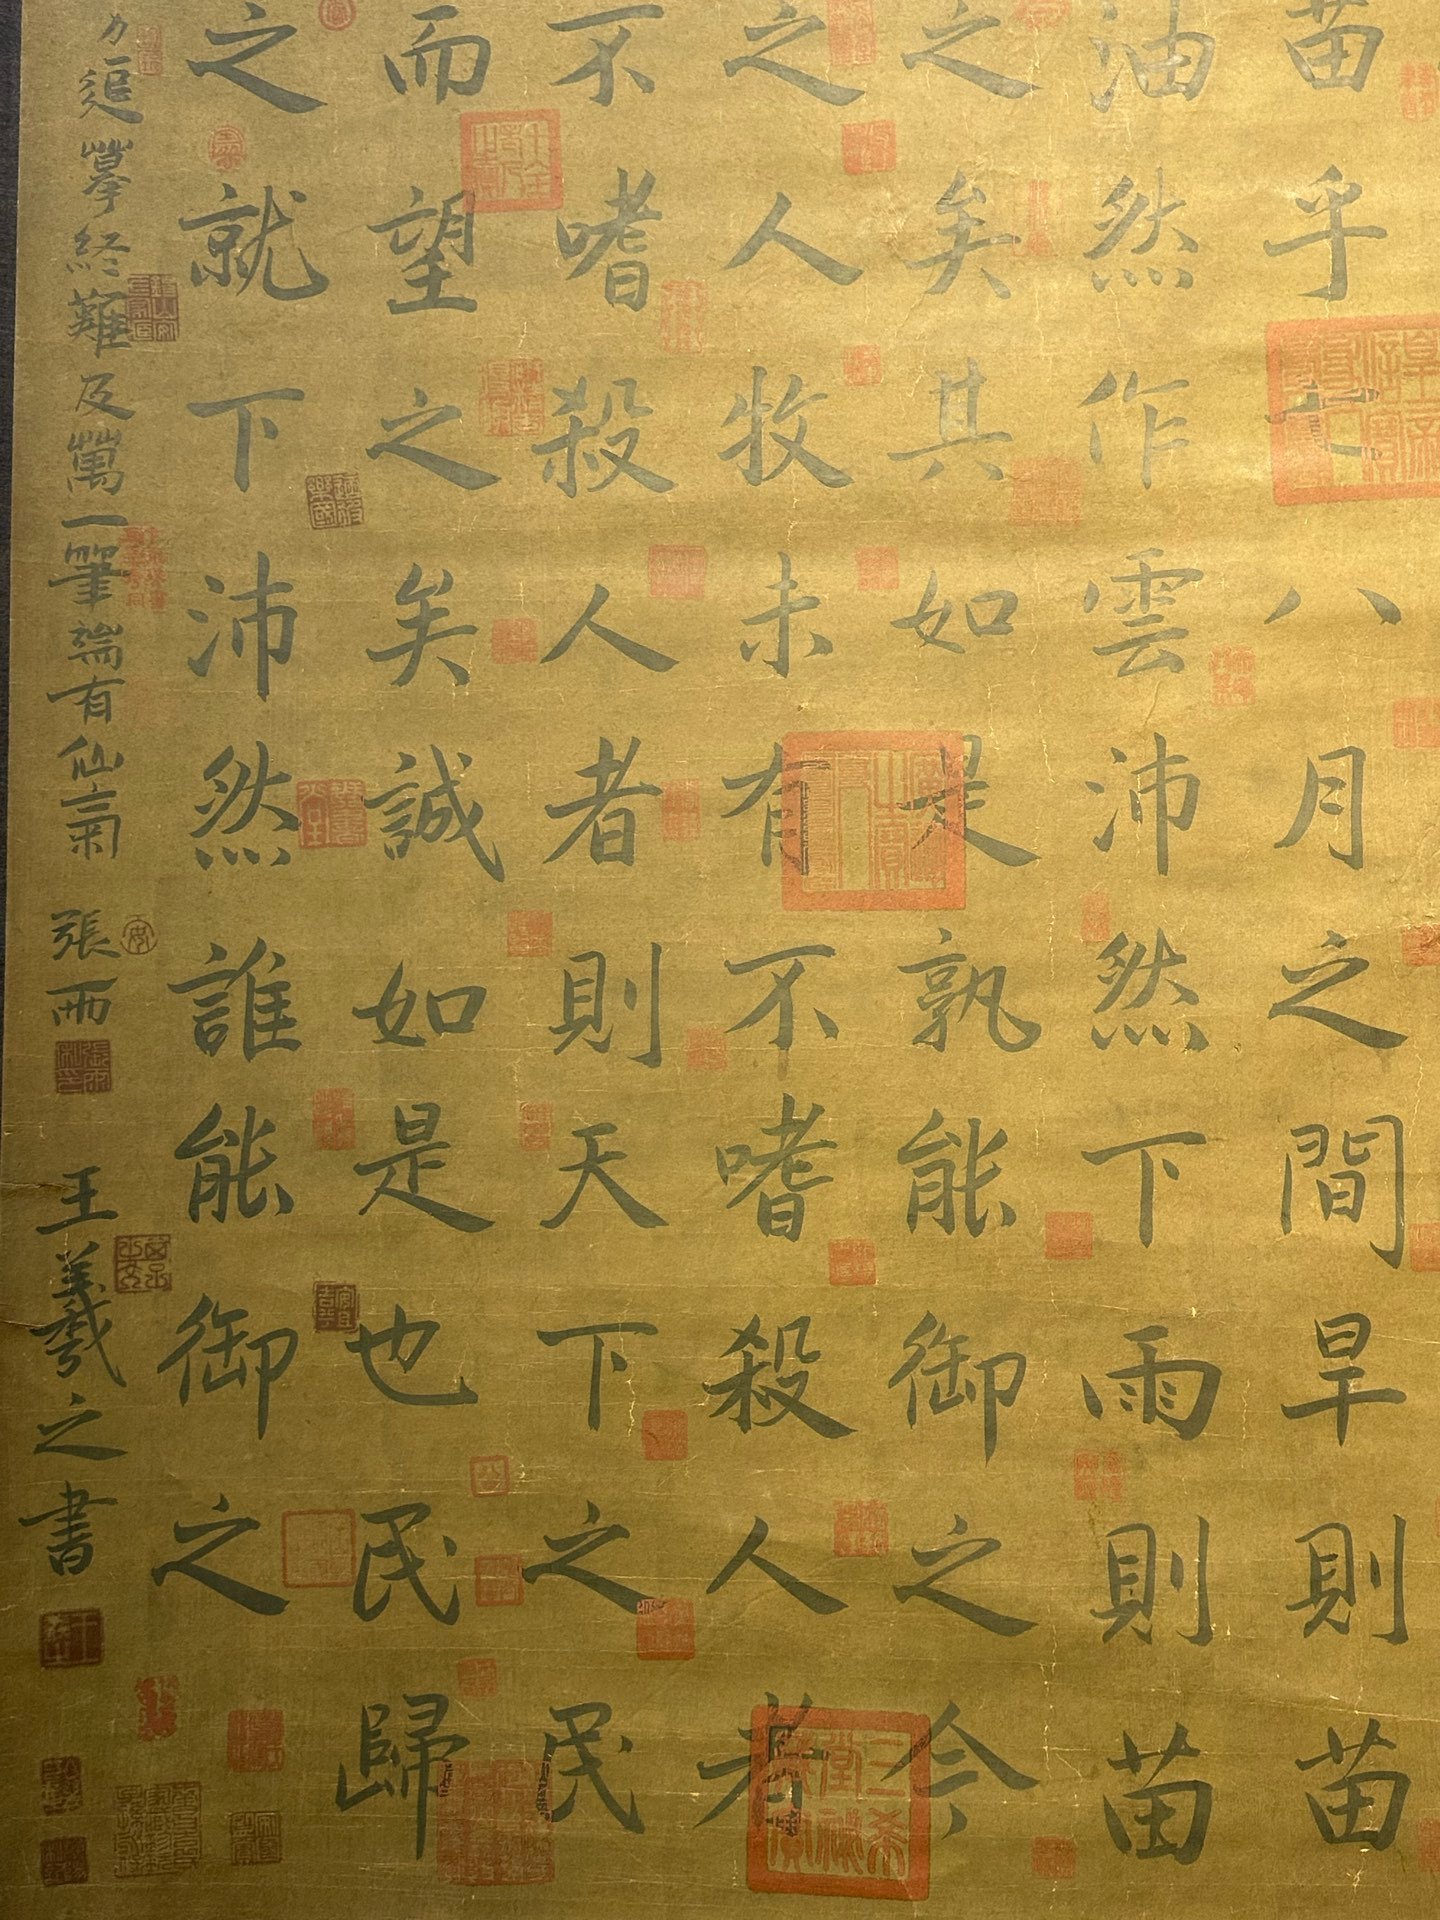 苗乎七八月之間旱則苗
油然作雲沛然下雨則苗
之矣其如是孰能御之今
之人牧未有不嗜殺人者
不嗜殺人者則天下之民
而望之矣誠如是也民歸
之就下沛然誰能御之
力追摹終難及萬一筆端有仙氣 張雨 王羲之書